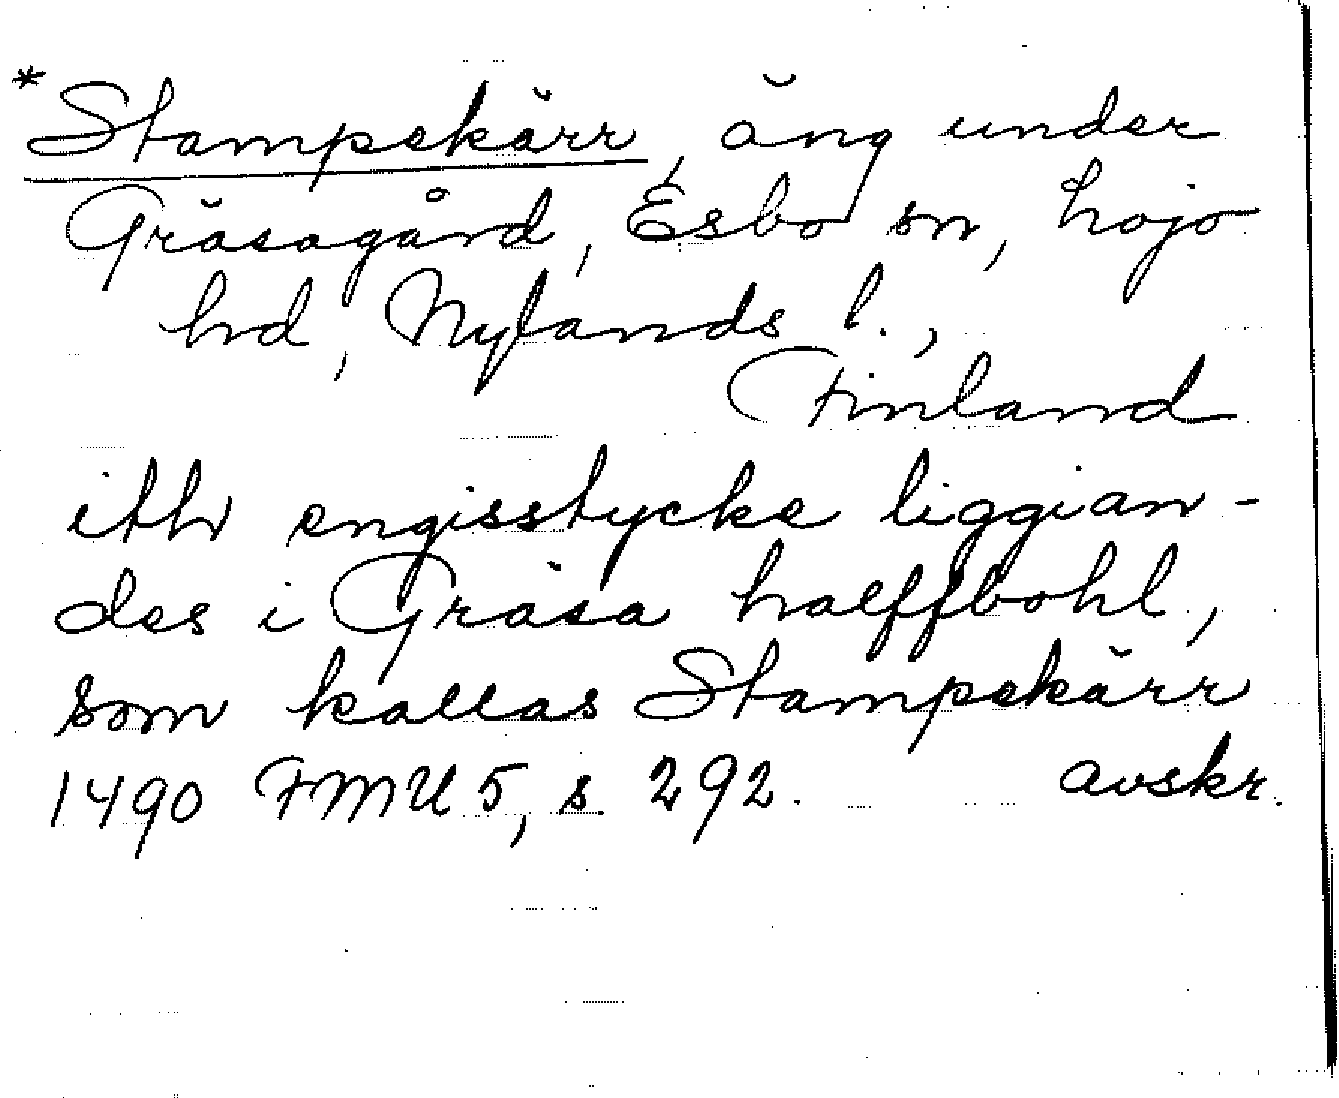 *Stampekärr, äng under
Gräsagård, Esbo sn, Lojo
hd, Nylands l.,
Finland
ith engisstycke liggian-
des i Gräsa halffbohl,
som kallas Stampekärr
1490 FMU 5, s 292. avskr.